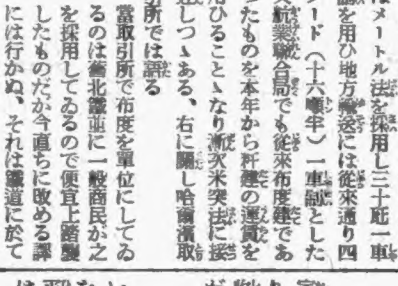 はメートル法を採用し三十瓩一車
を用ひ地方輸送には従来通り四
ード（十六噸半）一車割とした
航業聯合局でも従来布度建であ
つたものを本年から粁建の運賃を
用ひることゝなり漸次米突法に接
近しつゝある、右に關し哈爾濱取
引所では語る
當取引所で布度を單位にしてゐ
るのは舊北鐵並に一般商民が之
を採用してゐるので便宜上踏襲
したものだが今直ちに改める譯
には行かぬ、それは鐵道に於て